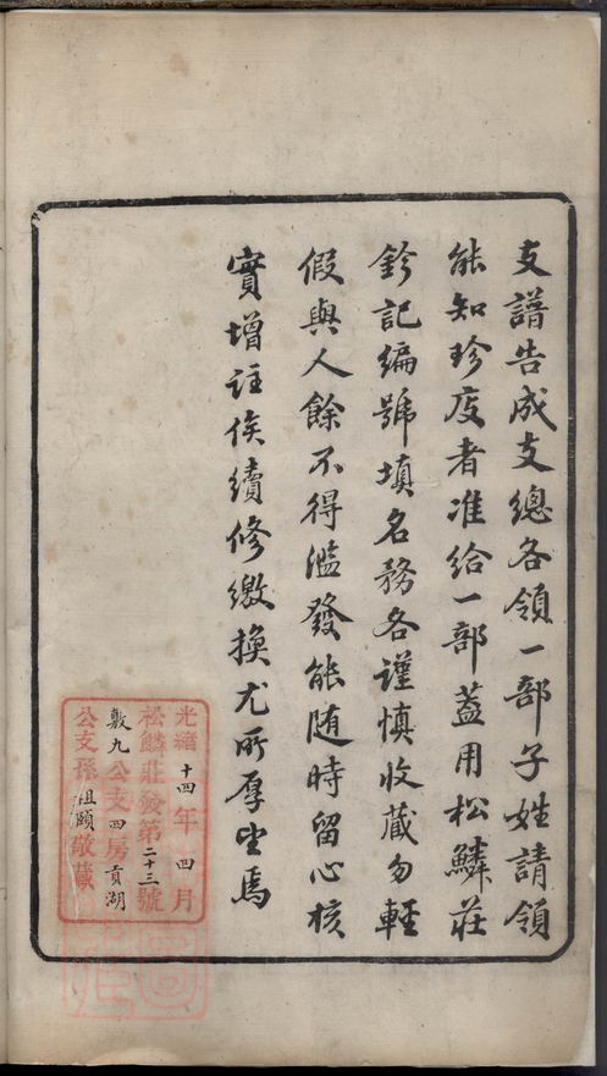 支譜告成支總各領一部子姓請領
能知珍庋者准給一部蓋用松鱗莊
鈐記編號填名務各謹慎收藏勿輕
假與人餘不得濫發能随時留心核
實增註俟續修繳換尤所厚望焉
光緒十四年四月
松鱗莊發第二十三號
敷九公支四房貢湖
公支孫祖頤敬藏